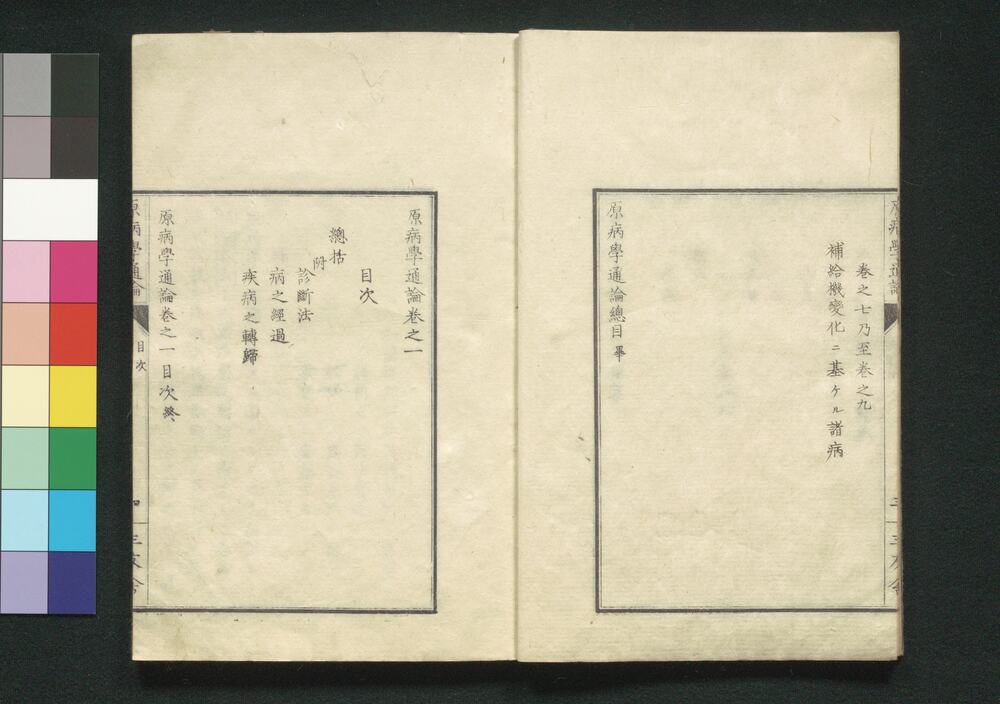 卷之七乃至卷之九
補給機變化ニ基ケル諸病
原病學通論總目畢
原病學通論卷之一
目次
總括
附
診斷法
病之經過
疾病之轉歸
原病學通論卷之一目次終
原病學通論
目次
四
三友舍